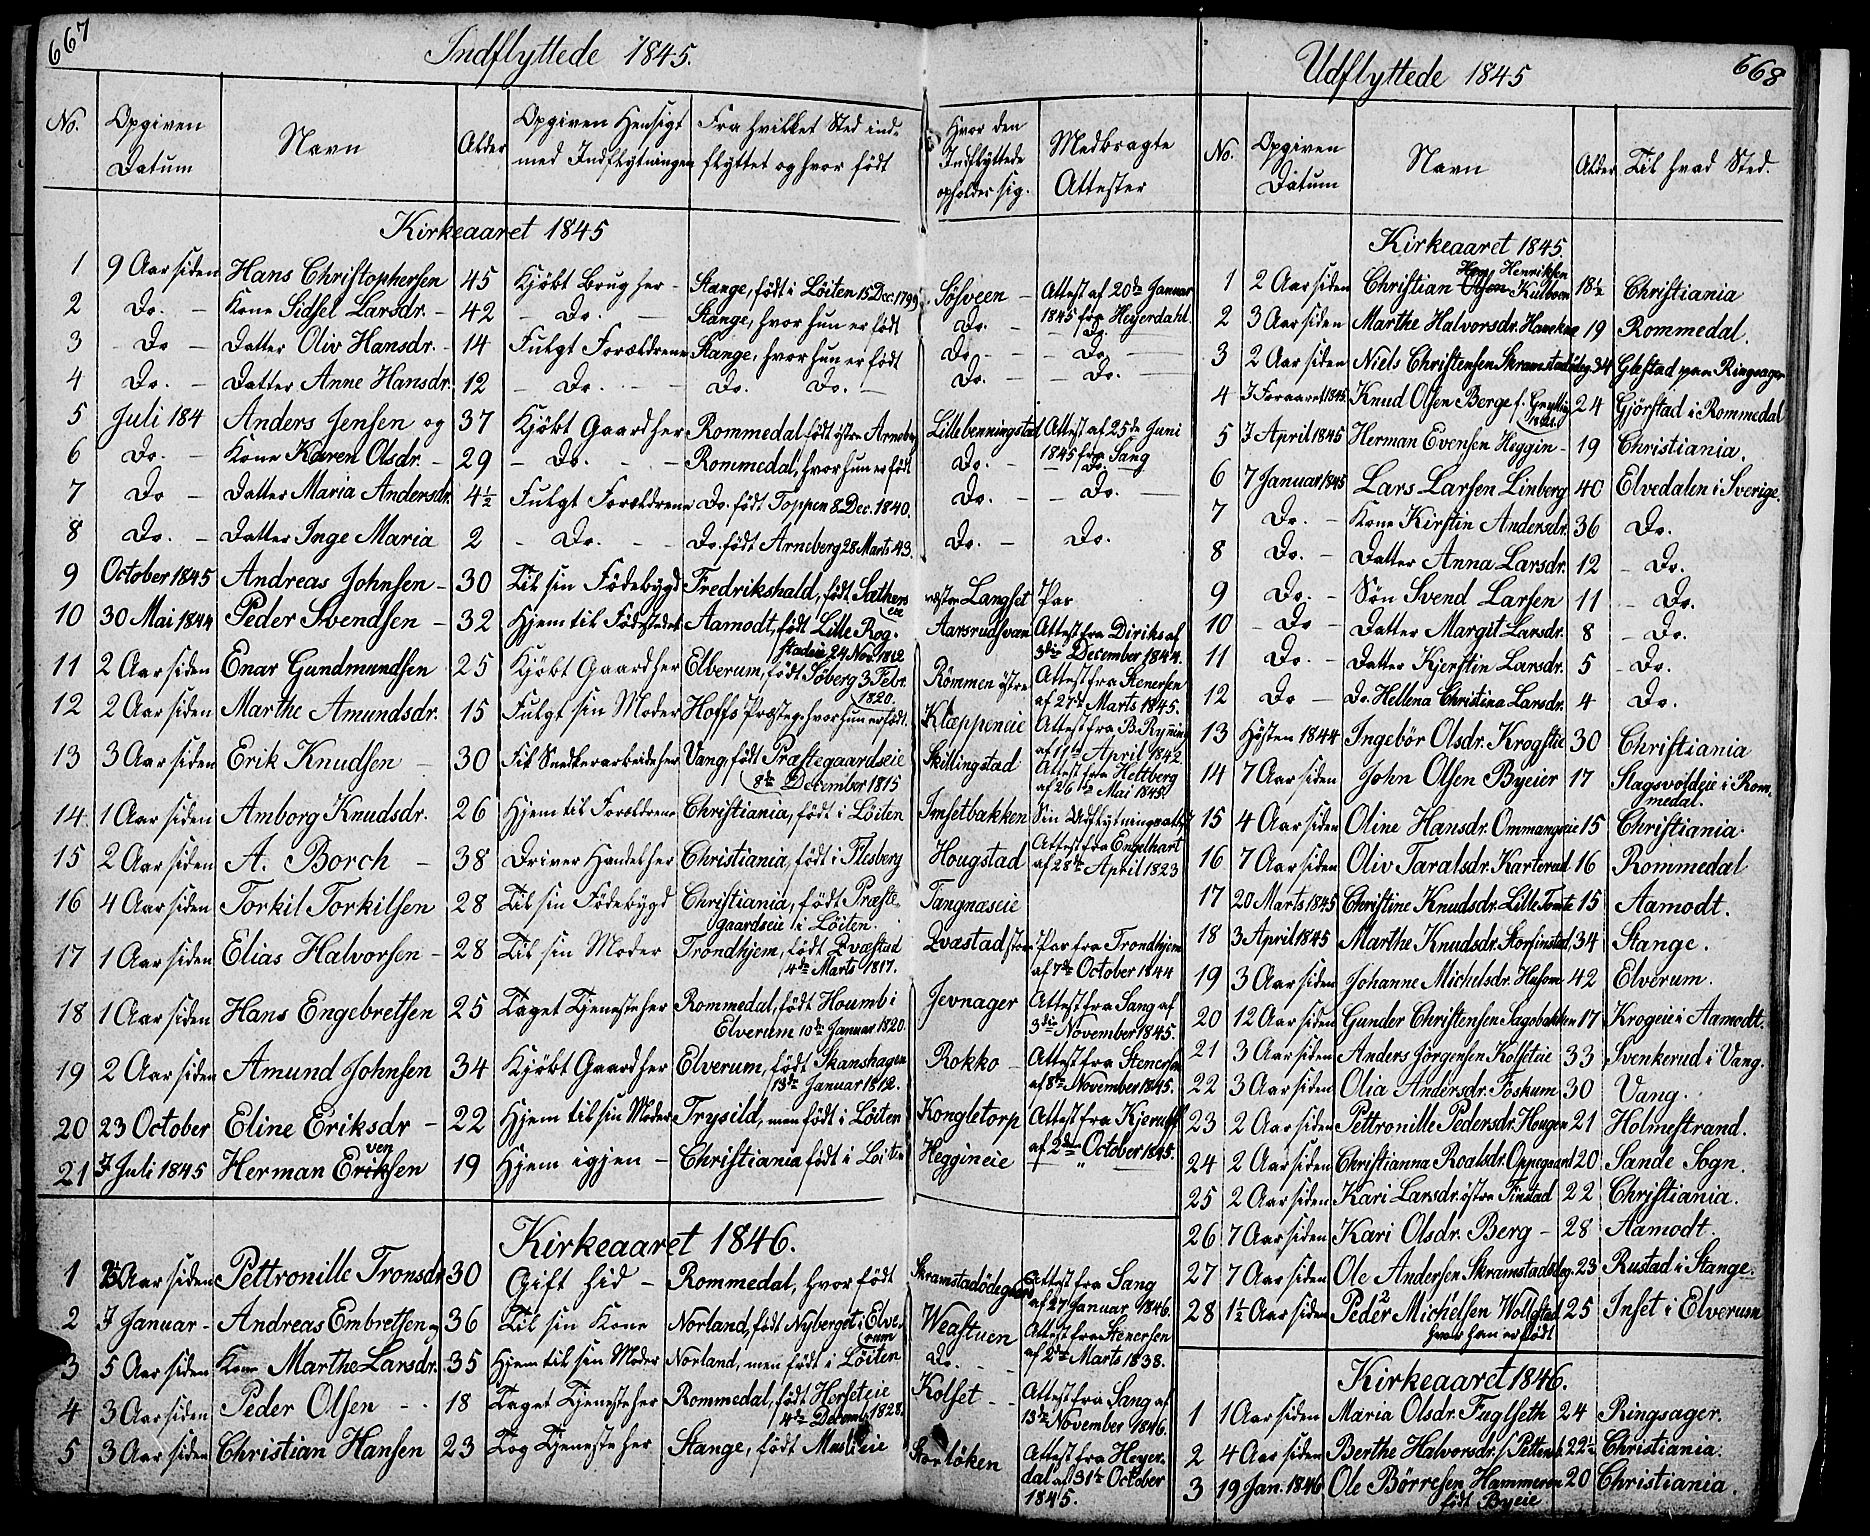 667
Indflyttede 1845.
No. | Opgiven Datum | Navn | Alder | Opgiven Hensigt med Indflytningen | Fra hvilket Sted indflyttet og hvor født | Hvor den Indflyttede opholder sig. | Medbragte Attester
Kirkeaaret 1845
1 | 9 Aar siden | Hans Christophersen | 45 | Kjöbt Brug her - | Stange, født i Löiten 15 Dec. 1799 | Sösveen - | Attest af 20de Januar 1845 fra Heyerdahl.
2 | Do. - | Kone Sidsel Larsdr. - | 42 | - Do. - | Stange, hvor hun er født | Do. - | - Do. -
3 | - Do - | Datter Oliv Hansdr. - | 14 | Fulgt Forældrene | Stange, hvor hun er født | Do. - | - Do. -
4 | Do. - | Datter Anne Hansdr. | 12 | - Do. - | Do. Do. - | Do. - | - Do. -
5 | Juli 184 | Anders Jensen og | 37 | Kjöbt Gaard her | Rommedal født östre Arneberg | Lillebenningstad | Attest af 25de Juni 1845 fra Sang
6 | Do. - | Kone Karen Olsdr. - | 29 | - Do. - | Rommedal, hvor hun er født | Do. - | - Do. -
7 | Do - | Datter Maria Andersdr. | 4½ | Fulgt Forældrene | Do. født Toppen 8 Dec. 1840. | Do. - | - Do. -
8 | Do. - | Datter Inge Maria | 2 | - Do. - | Do. født Arneberg 28 Marts 43. | Do. - | Do.
9 | October 1845 | Andreas Johnsen - | 30 | Til sin Födebygd | Fredrikshald, født Sætherseie | Langset | Pas
10 | 30 Mai 1844 | Peder Svendsen - | 32 | Hjem til Födestedet | Aamodt, født Lille Rogstadeie 24 Nov. 1812 | Aarsrudsveen | Attest fra Diriks af 3die December 1844.
11 | 2 Aar siden | Enar Gundmundsen | 25 | Kjöbt Gaard her | Elverum, født Söberg 3 Febr. 1820. | Römmen östre | Attest fra Stenersen af 27de Marts 1845.
12 | 2 Aar siden | Marthe Amundsdr. | 15 | Fulgt sin Moder | Hoffs Præsteg. hvor hun er født. | Klæppeneie | Attest fra B. af 11te April 1842
13 | 3 Aar siden | Erik Knudsen - | 30 | Til Snedkerarbeide her | Vang, født Præstegaardseie 8de December 1815 | Skillingstad | Attest fra Heltberg af 26de Mai 1845.
14. | 1 Aar siden | Amborg Knudsdr. | 26 | Hjem til Forældrene | Christiania, født i Löiten | Imsetbakken | Sin Udflytningsattest
15 | 2 Aar siden | A. Borch - | 38 | Driver Handel her | Christiania, født i Flesberg | Hougstad | Attest fra Engelhart af 28de April 1823
16 | 4 Aar siden | Torkil Torkilsen | 28 | Til sin Födebygd | Christiania, født Præstegaardseie i Löiten. | Tangnæseie
17 | 1 Aar siden | Elias Halvorsen - | 28 | Til sin Moder | Trondhjem, født Qvæstad 4de Marts 1817. | Qvæstad store | Pas fra Trondhjem af 7de October 1844
18 | 1 Aar siden | Hans Engebretsen | 25 | Taget Tjeneste her | Rommedal, født Houmb i Elverum 10de Januar 1820. | Jevnager | Attest fra Sang af 3die November 1845.
19 | 2 Aar siden | Amund Johnsen | 34 | Kjöbt Gaard her | Elverum, født Skanshagen 13de Januar 1812. | Rokko - | Attest fra Stenersen af 8de November 1845.
20 | 23 October | Eline Eriksdr - | 22 | Hjem til sin Moder | Trysild, men født i Löiten | Kongletorp | Attest fra Kjerulff af 2den October 1845.
21 | 7 Juli 1845 | Herman Eriksen ven | 19 | Hjem igjen - | Christiania født i Löiten | Heggineie | - " -
Kirkeaaret 1846.
1 | Aar siden | Pettronille Tronsdr | 30 | Gift hid - | Rommedal, hvor født | Skramstadödegaard | Attest fra Sang af 27 Januar 1846.
2 | 7 Januar - | Andreas Embretsen og | 36 | Til sin Kone | Norland, født Nyberget i Elverum | Weastuen | Attest fra Stenersen af 2den Marts 1838.
3 | 5 Aar siden | Kone Marthe Larsdr. | 35 | Hjem til sin Moder | Norland, men født i Löiten | Do. -
4 | 3 Aar siden | Peder Olsen - | 18 | Taget Tjeneste her | Rommedal, født Horseteie 4de Decemb. 1828. | Kolset - | Attest fra Sang af 13de November 1846.
5 | 3 Aar siden | Christian Hansen | 23 | Tog Tjeneste her | Stange, født | Storlöken | Attest fra Heyerdal af 31te October 1845.
668
Udflyttede 1845
No. | Opgiven Datum | Navn | Alder | Til hvad Sted.
Kirkeaaret 1845.
1 | 2 Aar siden | Christian Olsen Henriksen Kulbven | 18½ | Christiania
2 | 3 Aar siden | Marthe Halvorsdr. | 19 | Rommedal.
3 | 2 Aar siden | Niels Christensen Skramstadödeg. | 34 | Glæstad paa Ringsager
4 | 3 Foraaret 1845. | Knud Olsen Berge | 24 | Gjörstad i Rommedal
5 | 3 April 1845 | Herman Evensen Heggin - | 19 | Christiania.
6 | 7 Januar 1845 | Lars Larsen Linberg | 40 | Elvedalen i Sverige.
7 | Do. - | Kone Kirstin Andersdr. | 36 | Do.
8 | Do. - | Datter Anna Larsdr. | 12 | - Do.
9 | Do. - | Sön Svend Larsen | 11 | - Do.
10 | - Do - | Datter Margit Larsdr. | 8 | - Do.
11 | Do. - | Datter Kjerstin Larsdr. | 5 | - Do.
12 | Do - | Do. Hellena Christina Larsdr. | 4 | Do.
13 | Hösten 1844 | Ingebör Olsdr. Krogstie | 30 | Christiania
14 | 7 Aar siden | John Olsen Byeier | 17 | Stagsvoldeie i Rommedal.
15 | 4 Aar siden | Oline Hansdr. Ommangseie | 15 | Christiania.
16 | 7 Aar siden | Oliv Taralsdr. Karterud | 16 | Rommedal
17 | 20 Marts 1845 | Christine Knudsdr. Lille Tomte | 15 | Aamodt.
18 | 3 April 1845 | Marthe Knudsdr. Storfinstad | 34 | Stange.
19 | 3 Aar siden | Johanne Michelsdr. Husom | 42 | Elverum.
20 | 12 Aar siden | Gunder Christensen Sagobakken | 17 | Krogeie i Aamodt.
21 | 3 Aar siden | Anders Jörgensen Kolseteie | 33 | Svenkerud i Vang.
22 | 3 Aar siden | Olia Andersdr. Foskum | 30 | Vang.
23 | 2 Aar siden | Pettronille Pedersdr. Hougen | 21 | Holmestrand.
24 | 2 Aar siden | Christianna Roalsdr. Oppegaard | 20 | Sande Sogn.
25 | 2 Aar siden | Kari Larsdr. östre Finstad | 22 | Christiania.
26 | 7 Aar siden | Kari Olsdr. Berg - | 28 | Aamodt.
27 | 7 Aar siden | Ole Andersen Skramstadödeg. | 23 | Rustad i Stange.
28 | 1½ Aar siden | Peder Michelsen Wollstad hvor han er født | 25 | Inset i Elverum
Kirkeaaret 1846.
1 | 1 Aar siden | Maria Olsdr. Fuglseth | 24 | Ringsager.
2 | 4 Aar siden | Berthe Halvorsdr. | 22½ | Christiania.
3 | 19 Jan. 1846 | Ole Börresen Hammeren født Byeie | 20 | Christiania.